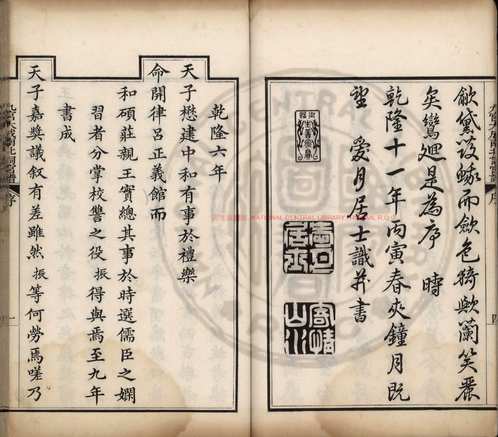 而歛色猗歟蘭笑麗
鸞迴是為序 時
乾隆十一年丙寅春夾鐘月既
望 愛月居士識并書
愛月居士
寄情山水
乾隆六年
天子懋建中和有事於禮樂
命開律呂正義館而
和碩莊親王實總其事於時選儒臣之嫻
習者分掌校讐之役振得與焉至九年
書成
天子嘉奬議叙有差雖然振等何勞焉嗟乃
序